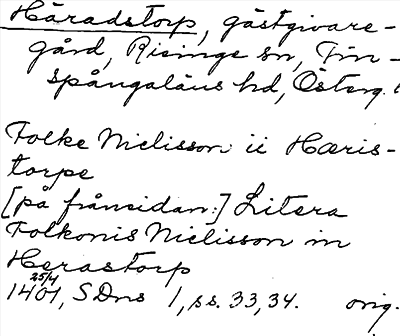 Häradstorp, gästgivare-
gård, Risinge sn, Fin-
spångaläns hd, Österg.
Folke Nielisson ii Hæris-
torpe
[på frånsidan:] Litera
Folkonis Nielisson in
Herastorp
1401 25/4, SDns 1, ss. 33, 34. orig.